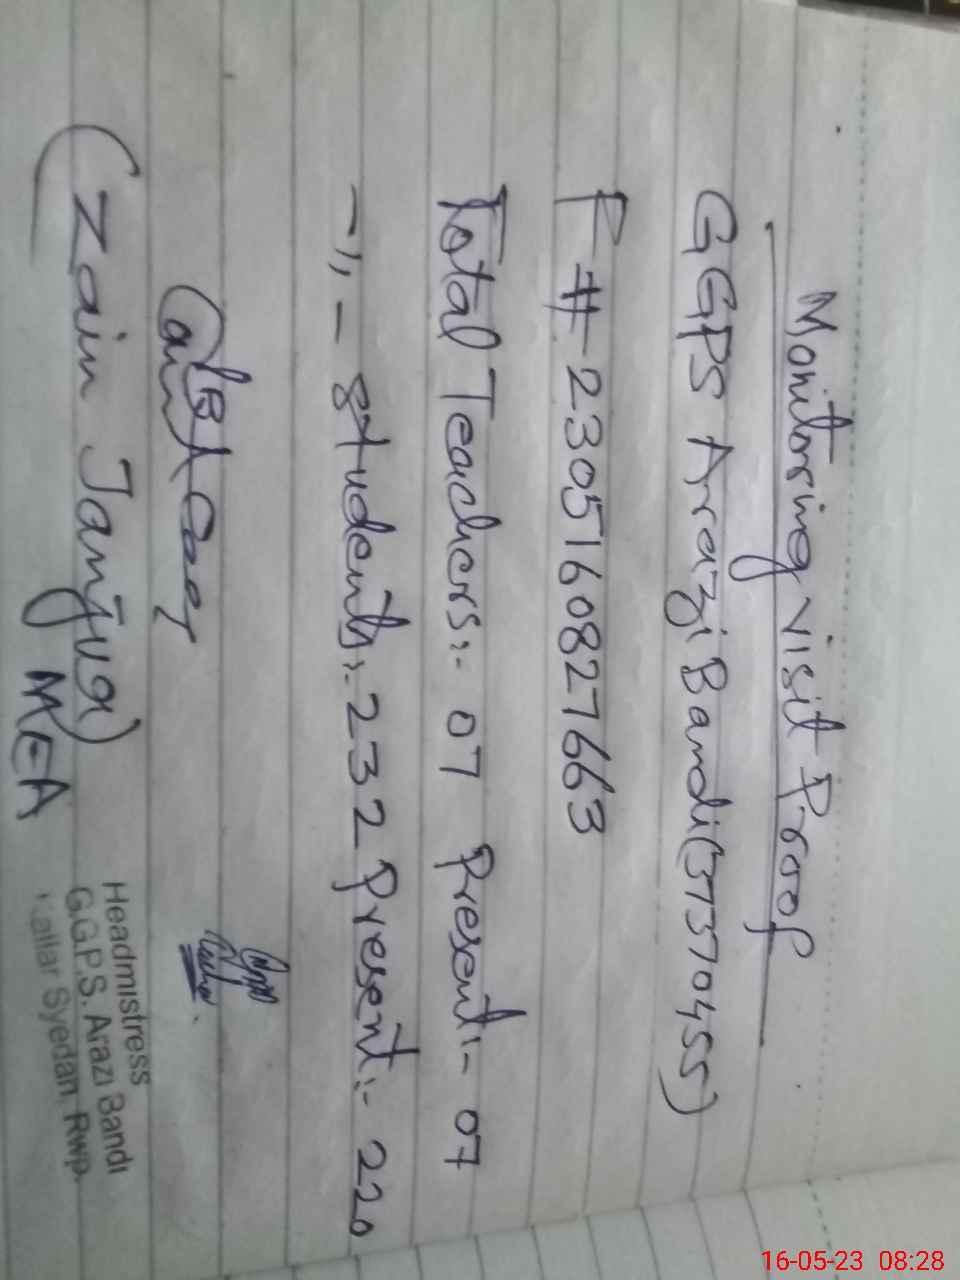 Monitoring visit Proof
GGPS Arazi Bandi (37370455)
F # 2305160827663
Total Teachers:- 07 Present:- 07
-,,- students:- 232 Present:- 220
(Zain Janjua)
MEA
Headmistress
G.G.P.S. Arazi Bandi
Kallar Syedan Rwp.
16-05-23 08:28